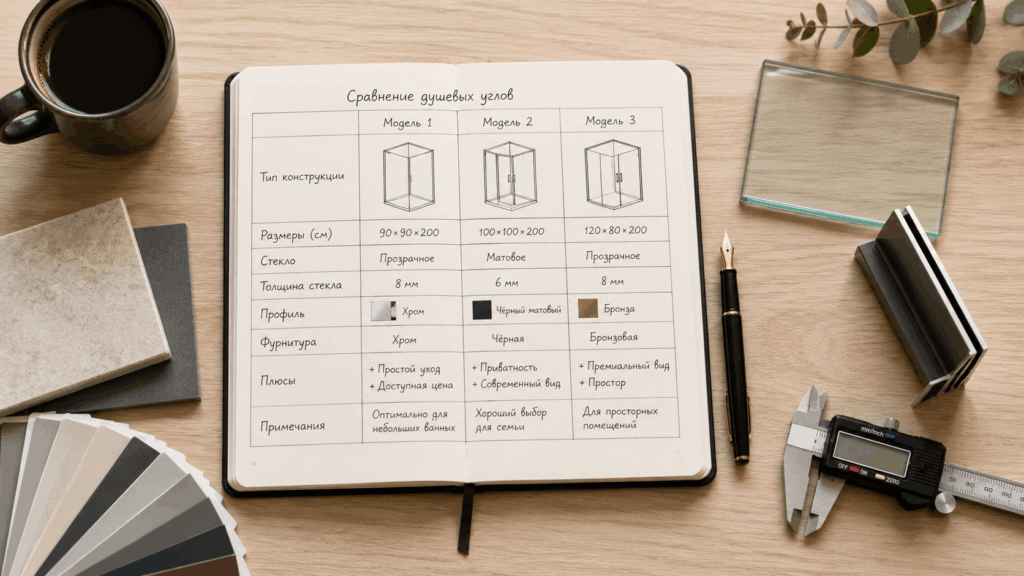 Сравнение душевых углов
Модель 1 Модель 2 Модель 3
Тип конструкции
Размеры (см) 90×90×200 100×100×200 120×80×200
Стекло Прозрачное Матовое Прозрачное
Толщина стекла 8 мм 6 мм 8 мм
Профиль Хром Чёрный матовый Бронза
Фурнитура Хром Чёрная Бронзовая
Плюсы + Простой уход + Приватность + Премиальный вид
+ Доступная цена + Современный вид + Простор
Примечания Оптимально для Хороший выбор Для просторных
небольших ванных для семьи помещений
mm/inch
OFF ON ZERO